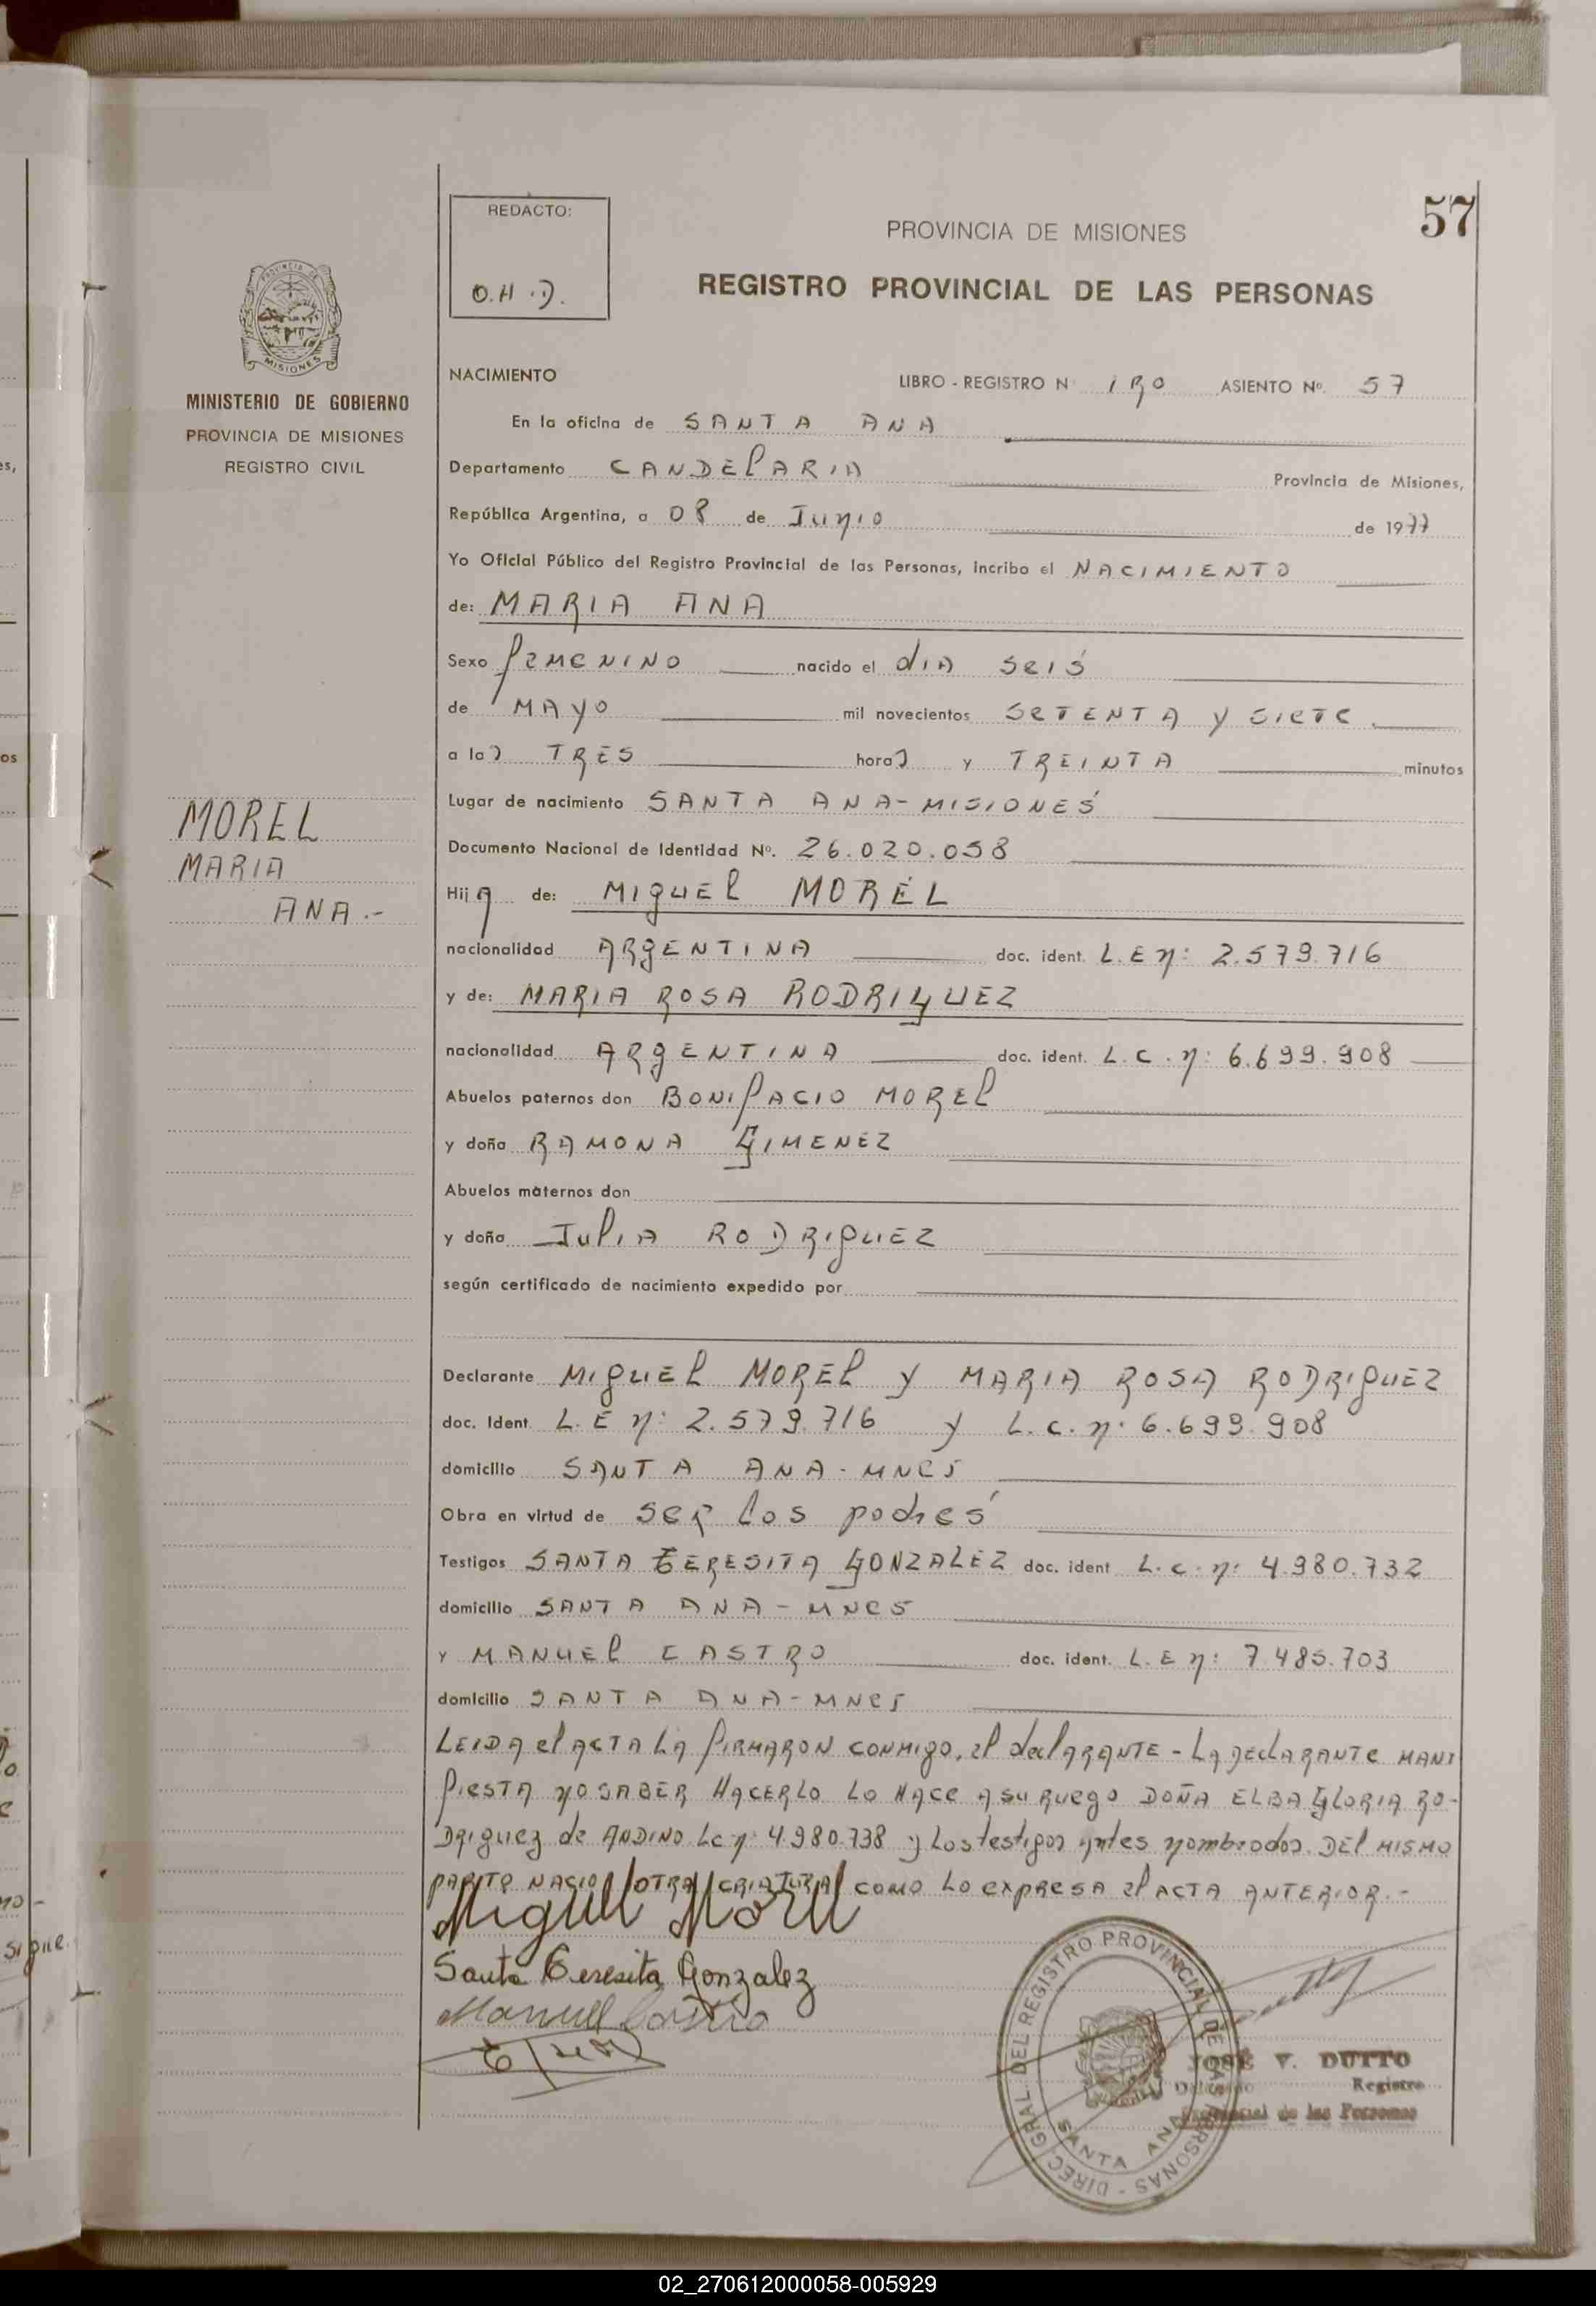 57
REDACTO:
O.H.D.
PROVINCIA DE MISIONES
REGISTRO PROVINCIAL DE LAS PERSONAS
PROVINCIA DE
MISIONES
MINISTERIO DE GOBIERNO
PROVINCIA DE MISIONES
REGISTRO CIVIL
MOREL
MARIA
ANA.-
NACIMIENTO LIBRO - REGISTRO N° 1RO ASIENTO Nº. 57
En la oficina de SANTA ANA
Departamento CANDELARIA Provincia de Misiones,
República Argentina, a 08 de Junio de 1977
Yo Oficial Público del Registro Provincial de las Personas, incribo el NACIMIENTO
de: MARIA ANA
Sexo femenino nacido el dIA seis
de MAYO mil novecientos SETENTA y siete
a las TRES horas y TREINTA minutos
Lugar de nacimiento SANTA ANA-MISIONES
Documento Nacional de Identidad Nº. 26.020.058
Hija de: MIguEl MOREL
nacionalidad ARgENTINA doc. ident. L.E n: 2.579.716
y de: MARIA ROSA RODRIGUEZ
nacionalidad ARgENTINA doc. ident. L.C.n: 6.699.908
Abuelos paternos don BONIfACIO MOREl
y doña RAMONA GIMENEZ
Abuelos maternos don
y doña JulIA RODRIguEZ
según certificado de nacimiento expedido por
Declarante MIguEl MOREl y MARIA ROSA RODRIguEZ
doc. Ident. L.E n: 2.579.716 y L.c.n: 6.699.908
domicilio SANTA ANA-MNES
Obra en virtud de ser los padres
Testigos SANTA TERESITA GONZALEZ doc. ident L.c.n: 4.980.732
domicilio SANTA ANA-MNES
Y MANUEl CASTRO doc. ident. L.E n: 7.485.703
domicilio SANTA ANA-MNES
LEIDA el ACTA LA fIRMARON CONMIgo, el declARANTE - LA DEclARANTE MANI
fiesTA no SABER HACERLO LO HACE A su Ruego DOÑA ELBA GLORIA RO-
DRIguez de ANDINO Lc n: 4.980.738 y Los testigos antes nombrados. DEl MISMO
PARTO NACIO OTRA CRIATURA COMO LO EXPRESA el ACTA ANTERIOR.-
Miguel Morel
Santa Teresita Gonzalez
Manuel Castro
DIREC. GRAL. DEL REGISTRO PROVINCIAL DE LAS PERSONAS
SANTA ANA
JOSE V. DUTTO
Registro
Provincial de las Personas
sigue
02_270612000058-005929